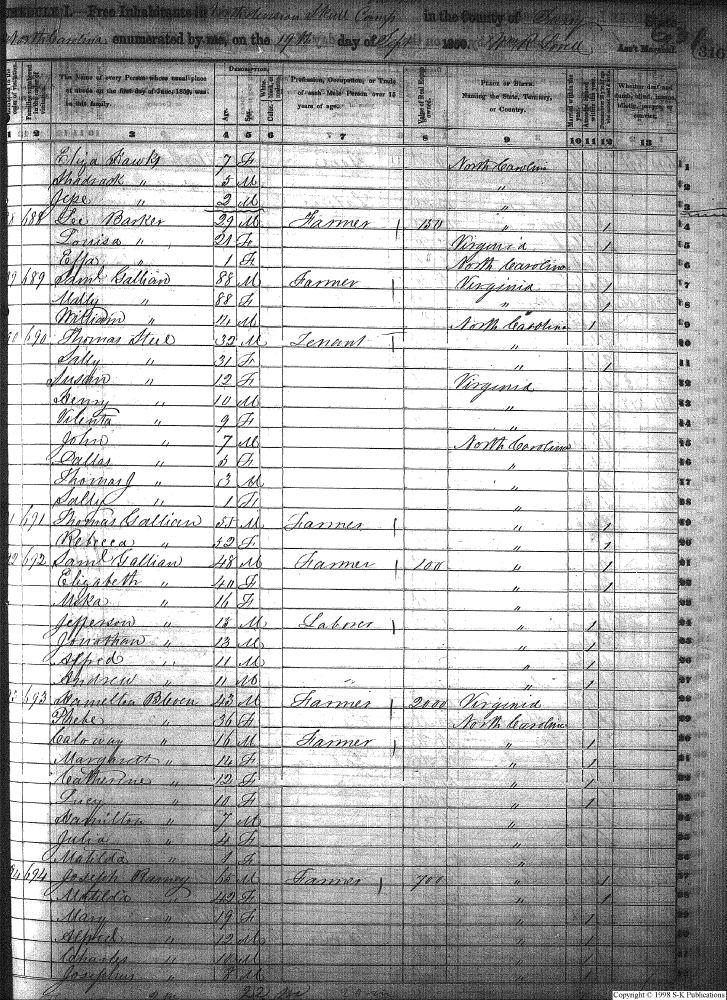 SCHEDULE I.—Free Inhabitants in North division Skull Camp in the County of Surry State
of North Carolina enumerated by me, on the 19th day of Sept 1850. Ass't Marshal. 316
The Name of every Person whose usual place of abode on the first day of June, 1850, was in this family.
DESCRIPTION.
Age. Sex. Color.
Profession, Occupation, or Trade of each Male Person over 15 years of age.
Value of Real Estate owned.
PLACE OF BIRTH. Naming the State, Territory, or Country.
1 2 3 4 5 6 7 8 9 10 11 12 13
Eliza Hawks 7 F North Carolina 1
Shadrack " 5 M " 2
" 2 M " 3
688 Barker 29 M Farmer 150 " 1 4
Louisa " 21 F Virginia 1 5
Effa " 1 F North Carolina 6
689 Saml Gallian 88 M Farmer Virginia 1 7
Molly " 88 F " 1 8
William " 14 M North Carolina 1 9
690 Thomas Steel 32 M Tenant " 10
Sally " 31 F " 1 11
Susan " 12 F Virginia 12
Henry " 10 M " 13
" 9 F " 14
John " 7 M North Carolina 15
Dallas " 5 F " 16
Thomas J " 3 M " 17
Sally " 1 F " 18
691 Thomas Gallian 55 M Farmer " 1 19
Rebecca " 52 F " 1 20
692 Saml Gallian 48 M Farmer 100 " 1 21
Elizabeth " 40 F " 1 22
" 16 F " 23
Jefferson " 18 M Laborer " 1 24
Jonathan " 13 M " 1 25
Alfred " 11 M " 1 26
Andrew " 11 M " " 1 27
693 Hamelton Bleven 43 M Farmer 2000 Virginia 28
Phebe " 36 F North Carolina 29
Caloway " 16 M Farmer " 1 30
Margarett " 14 F " 1 31
Catherine " 12 F " 1 32
Lucy " 10 F " 1 33
Hamilton " 7 M " 34
Julia " 4 F " 35
Matilda " 1 F " 36
694 Joseph 65 M Farmer 700 " 1 37
Matilda " 42 F " 1 38
Mary " 19 F " 1 39
Alfred " 12 M " 1 40
Charles " 10 M " 1 41
Josephus " 8 M " 1 42
Copyright © 1998 S-K Publications